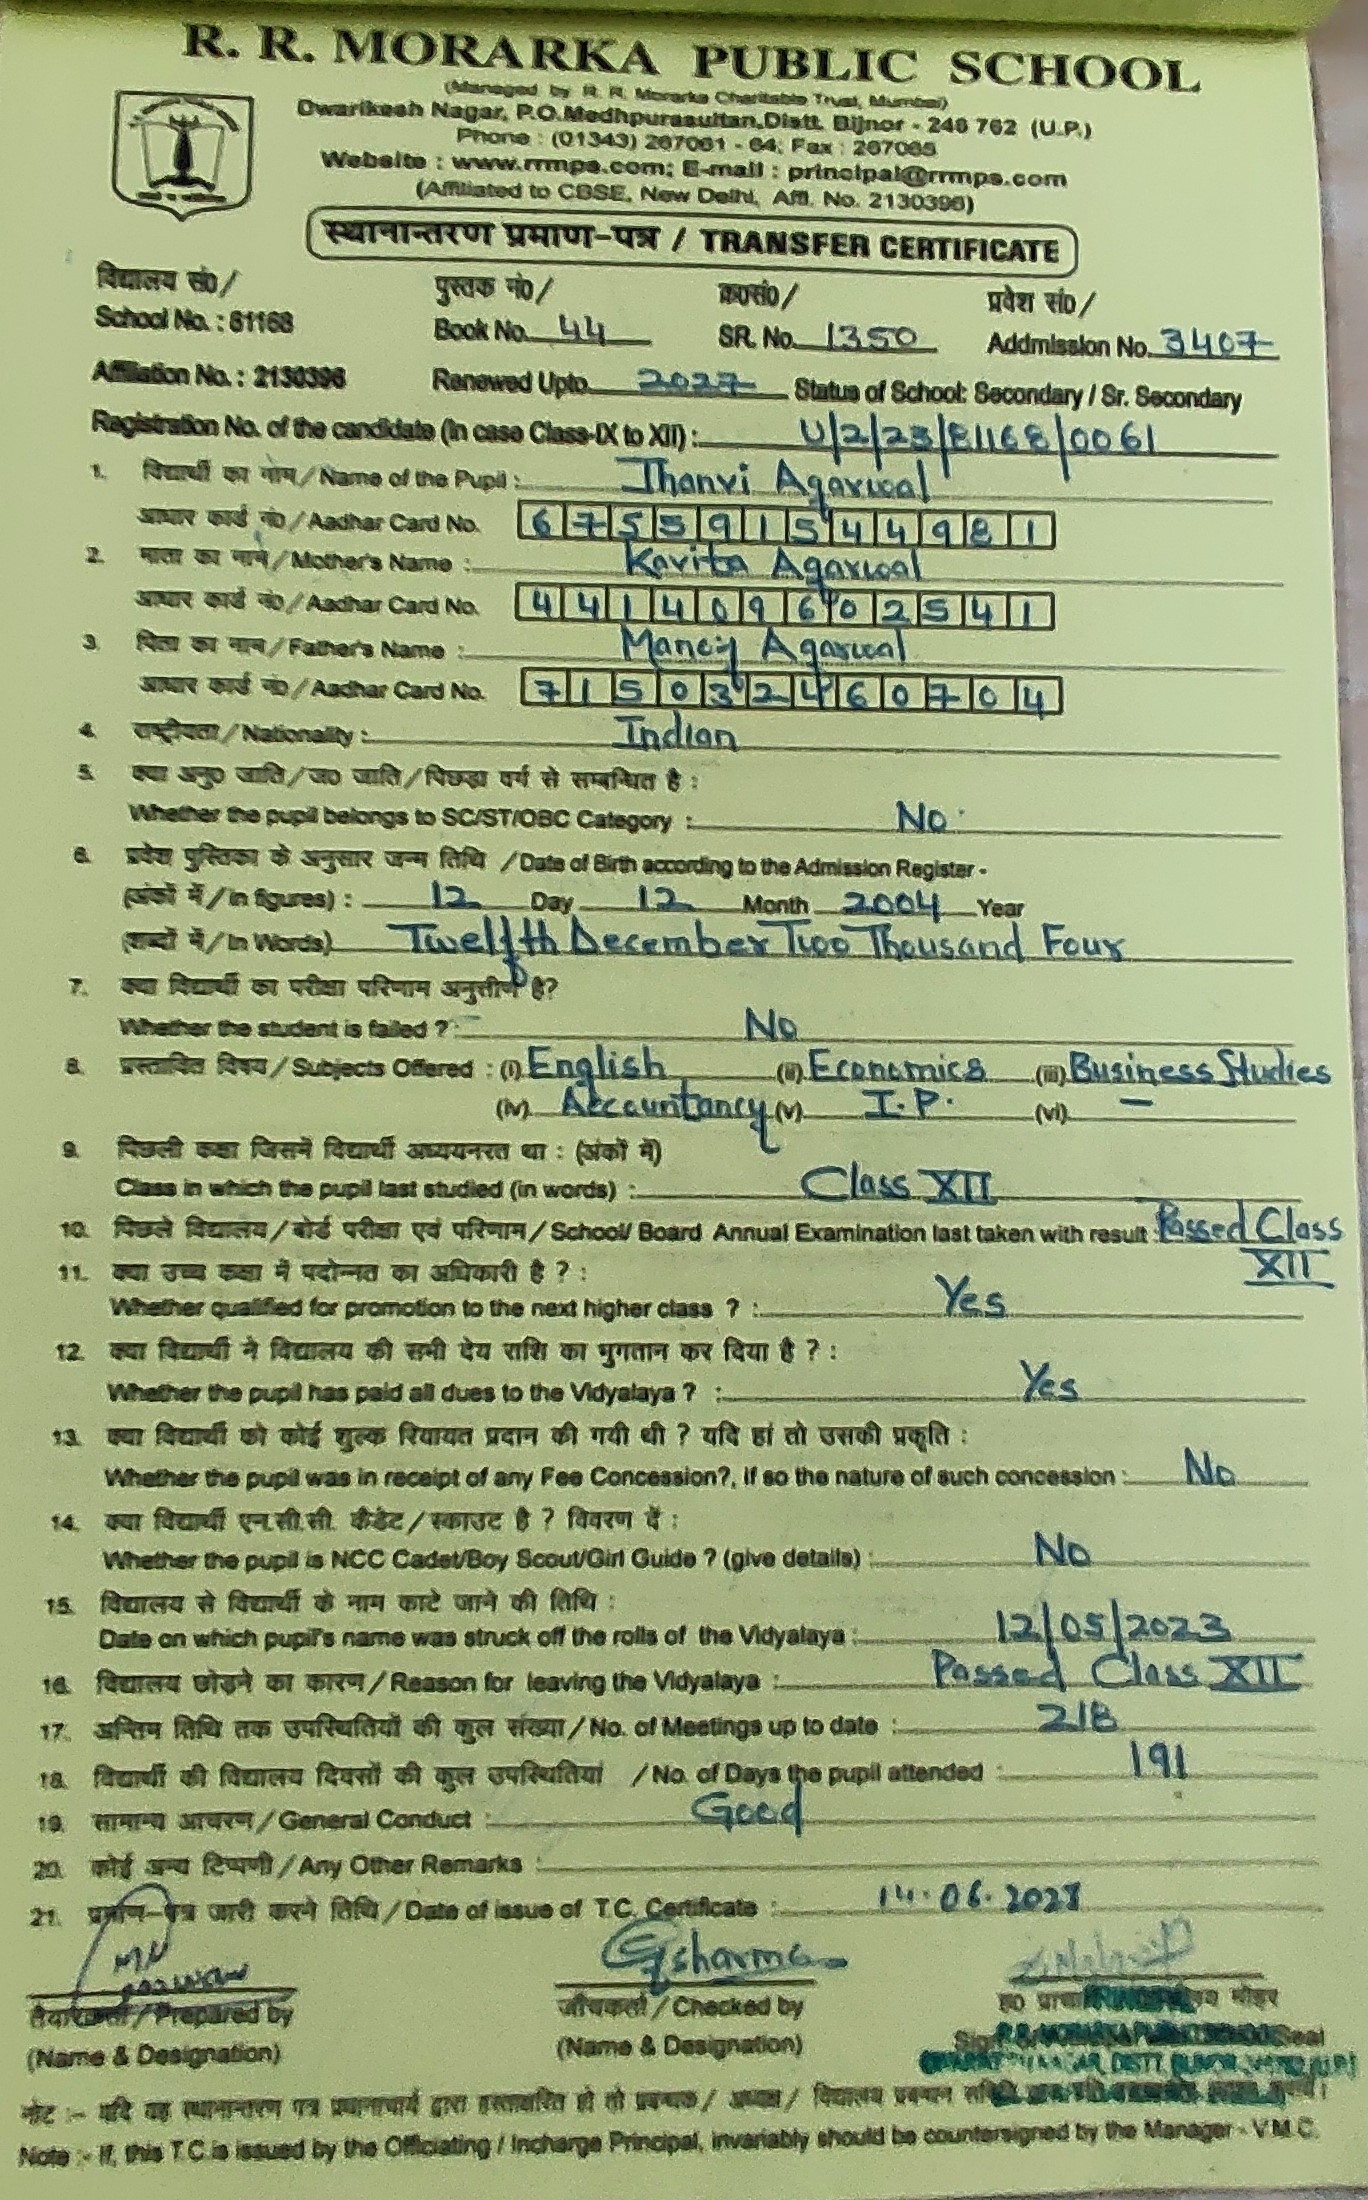 R. R. MORARKA PUBLIC SCHOOL
(Managed by R. R. Morarka Charitable Trust, Mumbai)
Dwarikesh Nagar, P.O.Medhpurasultan,Distt. Bijnor - 246 762 (U.P.)
Phone : (01343) 267061 - 64; Fax : 267065
Website : www.rrmps.com; E-mail : principal@rrmps.com
(Affiliated to CBSE, New Delhi, Affl. No. 2130396)
स्थानान्तरण प्रमाण-पत्र / TRANSFER CERTIFICATE
विद्यालय सं०/ पुस्तक नं०/ क्र०सं०/ प्रवेश सं०/
School No. : 81168 Book No. 44 SR. No. 1350 Addmission No. 3407
Affiliation No. : 2130396 Renewed Upto 2027 Status of School: Secondary / Sr. Secondary
Registration No. of the candidate (in case Class-IX to XII) : U/2/23/81168/0061
1. विद्यार्थी का नाम/Name of the Pupil : Jhanvi Agarwal
आधार कार्ड नं०/Aadhar Card No. 675591544981
2. माता का नाम/Mother's Name : Kavita Agarwal
आधार कार्ड नं०/Aadhar Card No. 441409602541
3. पिता का नाम/Father's Name : Manoj Agarwal
आधार कार्ड नं०/Aadhar Card No. 715032460704
4. राष्ट्रीयता/Nationality : Indian
5. क्या अनु० जाति/ज० जाति/पिछड़ा वर्ग से सम्बन्धित है :
Whether the pupil belongs to SC/ST/OBC Category : No
6. प्रवेश पुस्तिका के अनुसार जन्म तिथि /Date of Birth according to the Admission Register -
(अंकों में/In figures) : 12 Day 12 Month 2004 Year
(शब्दों में/In Words) Twelfth December Two Thousand Four
7. क्या विद्यार्थी का परीक्षा परिणाम अनुत्तीर्ण है?
Whether the student is failed ? No
8. प्रस्तावित विषय/Subjects Offered : (i) English (ii) Economics (iii) Business Studies
(iv) Accountancy (v) I.P. (vi) –
9. पिछली कक्षा जिसमें विद्यार्थी अध्ययनरत था : (अंकों में)
Class in which the pupil last studied (in words) : Class XII
10. पिछले विद्यालय/बोर्ड परीक्षा एवं परिणाम/School/ Board Annual Examination last taken with result : Passed Class
XII
11. क्या उच्च कक्षा में पदोन्नत का अधिकारी है ? :
Whether qualified for promotion to the next higher class ? : Yes
12. क्या विद्यार्थी ने विद्यालय की सभी देय राशि का भुगतान कर दिया है ? :
Whether the pupil has paid all dues to the Vidyalaya ? : Yes
13. क्या विद्यार्थी को कोई शुल्क रियायत प्रदान की गयी थी ? यदि हां तो उसकी प्रकृति :
Whether the pupil was in receipt of any Fee Concession?, if so the nature of such concession : No
14. क्या विद्यार्थी एन.सी.सी. कैडेट/स्काउट है ? विवरण दें :
Whether the pupil is NCC Cadet/Boy Scout/Girl Guide ? (give details) : No
15. विद्यालय से विद्यार्थी के नाम काटे जाने की तिथि :
Date on which pupil's name was struck off the rolls of the Vidyalaya : 12/05/2023
16. विद्यालय छोड़ने का कारण/Reason for leaving the Vidyalaya : Passed Class XII
17. अन्तिम तिथि तक उपस्थितियों की कुल संख्या/No. of Meetings up to date : 218
18. विद्यार्थी की विद्यालय दिवसों की कुल उपस्थितियां /No. of Days the pupil attended : 191
19. सामान्य आचरण/General Conduct : Good
20. कोई अन्य टिप्पणी/Any Other Remarks :
21. प्रमाण-पत्र जारी करने तिथि/Date of issue of T.C. Certificate : 14.06.2023
Gsharma
तैयारकर्ता/Prepared by जाँचकर्ता/Checked by
(Name & Designation) (Name & Designation)
R.R. MORARKA PUBLIC SCHOOL
नोट :- यदि यह स्थानान्तरण पत्र प्रधानाचार्य द्वारा हस्ताक्षरित हो तो प्रबन्धक/ अध्यक्ष/ विद्यालय प्रबन्धन
Note :- If, this T.C.is issued by the Officiating / Incharge Principal, invariably should be countersigned by the Manager - V.M.C.